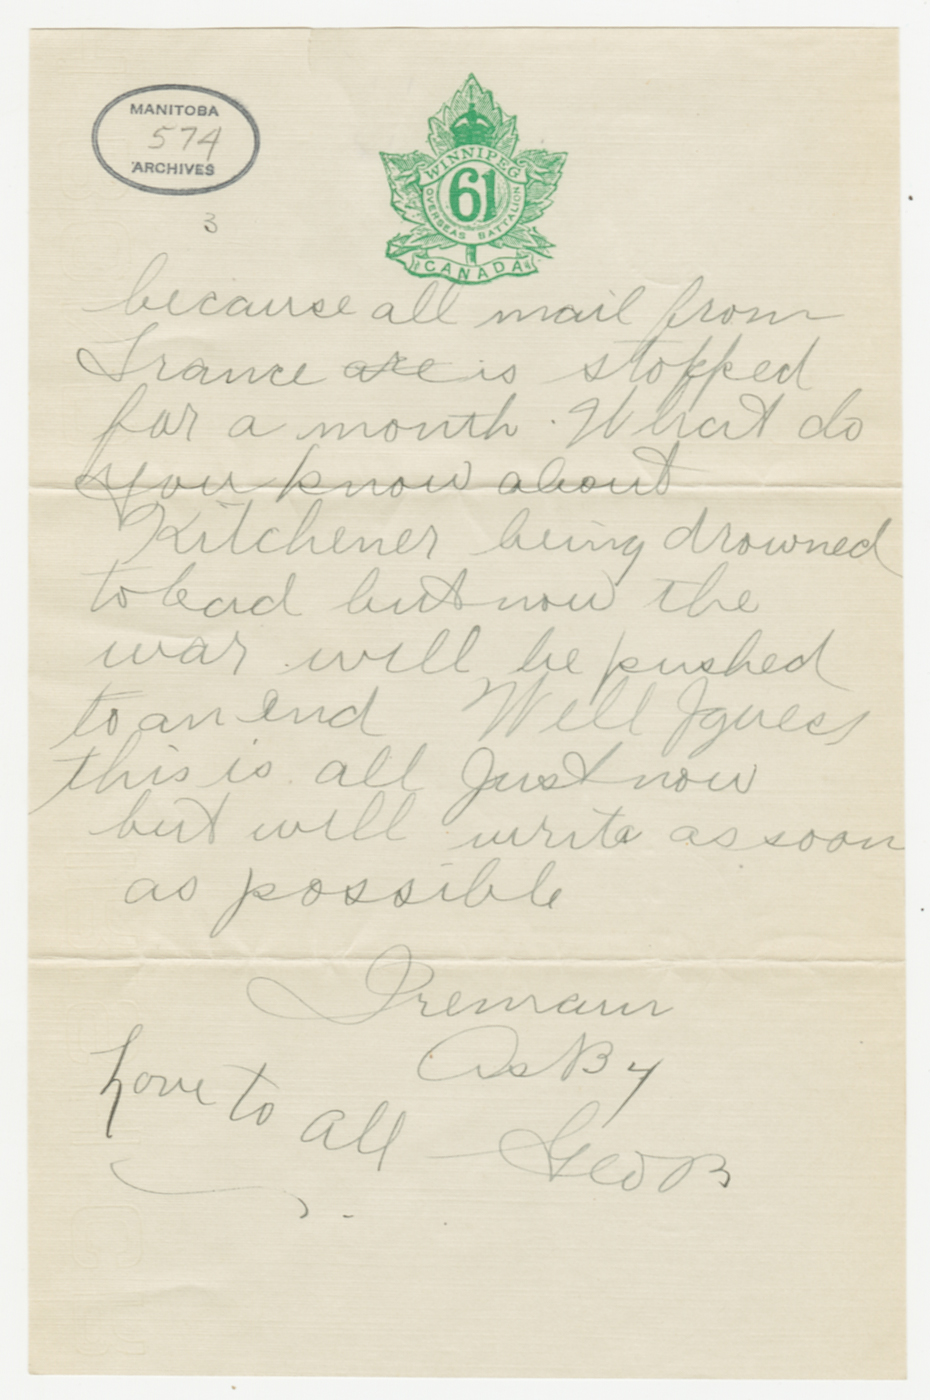 MANITOBA
574
ARCHIVES
WINNIPEG
61
OVERSEAS BATTALION
CANADA
3
because all mail from
France are is stopped
for a month. What do
you know about
Kitchener being drowned
to bad but now the
war will be pushed
to an end Well I guess
this is all Just now
but will write as soon
as possible
I remain
As By
Love to all
Geo B